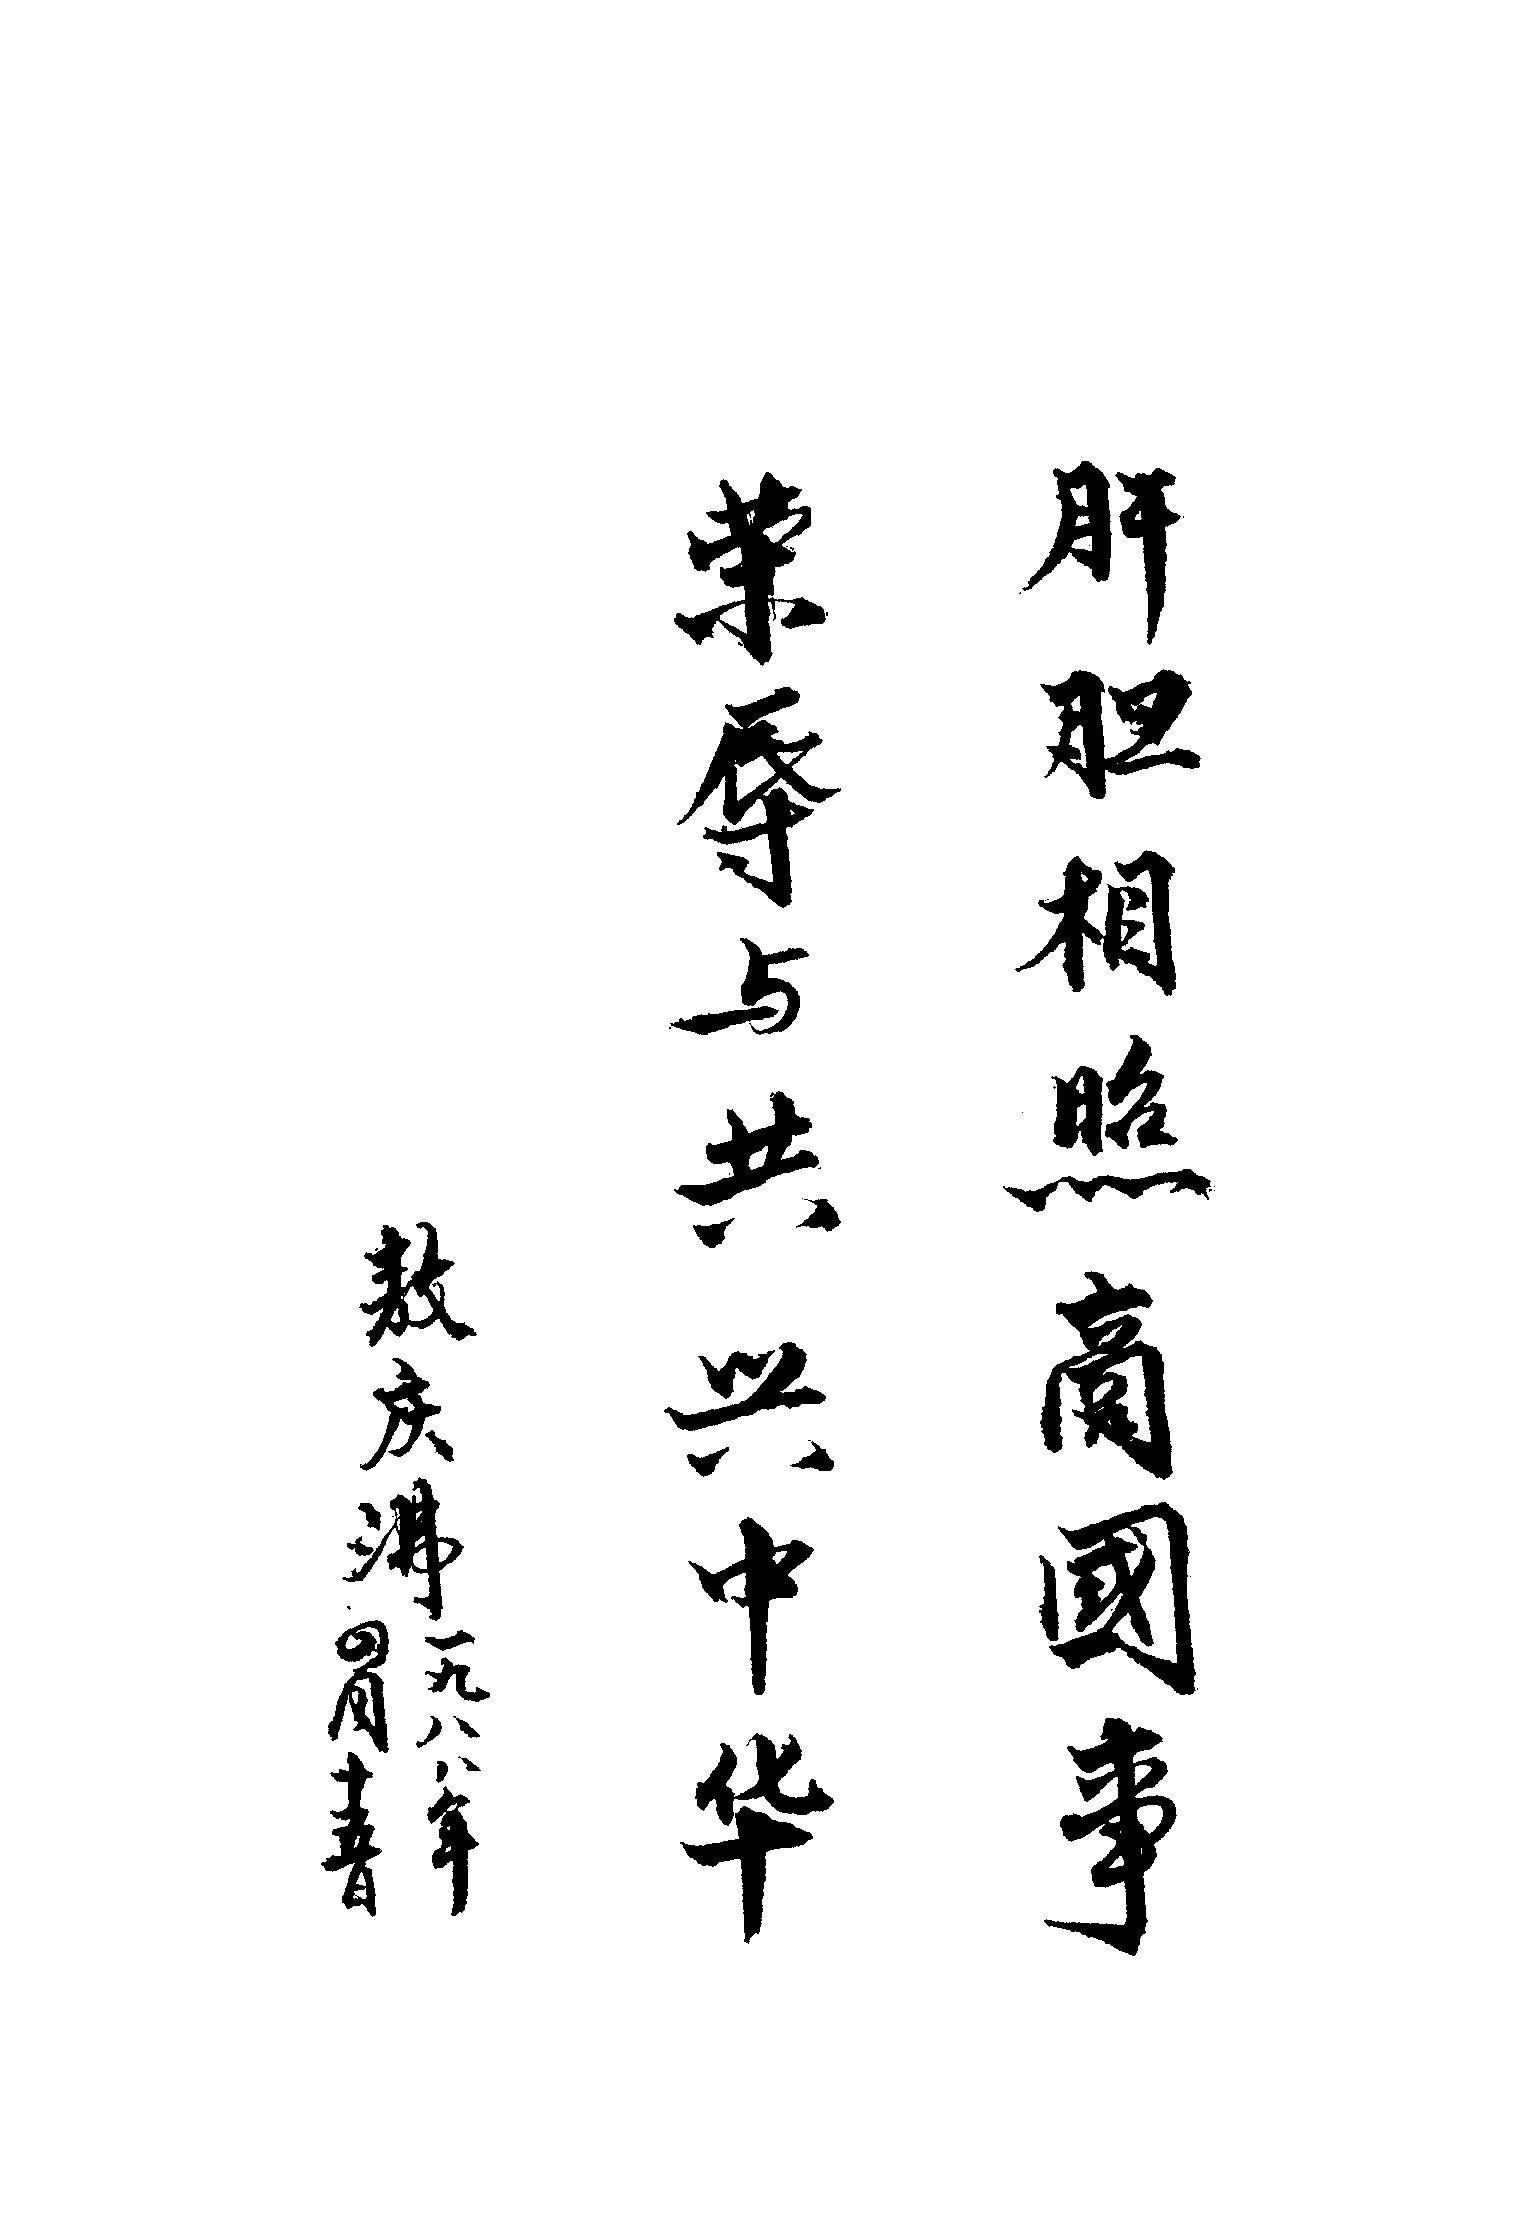 肝胆相照商國事
荣辱与共兴中华
敖庆沸
一九八八年
四月十五日